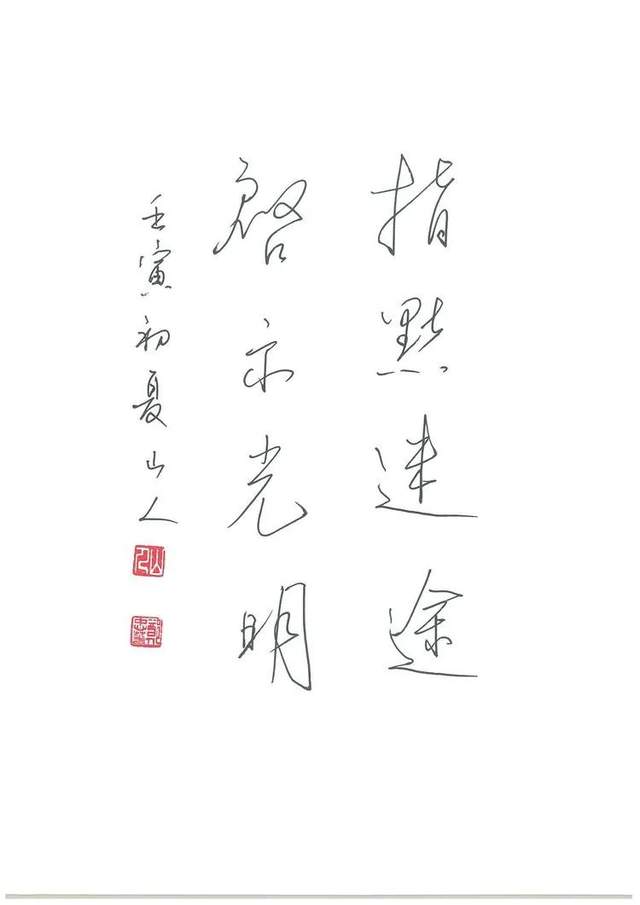 指點迷途
啓示光明
壬寅初夏山人
山人